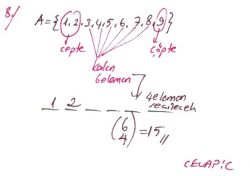 8./ A={1,2,3,4,5,6,7,8,9}
cepte çepte
kalan
6 eleman
1 2 _ _ _ _ 4 eleman
seçilecek
(6 4) = 15 //
CEVAP: C